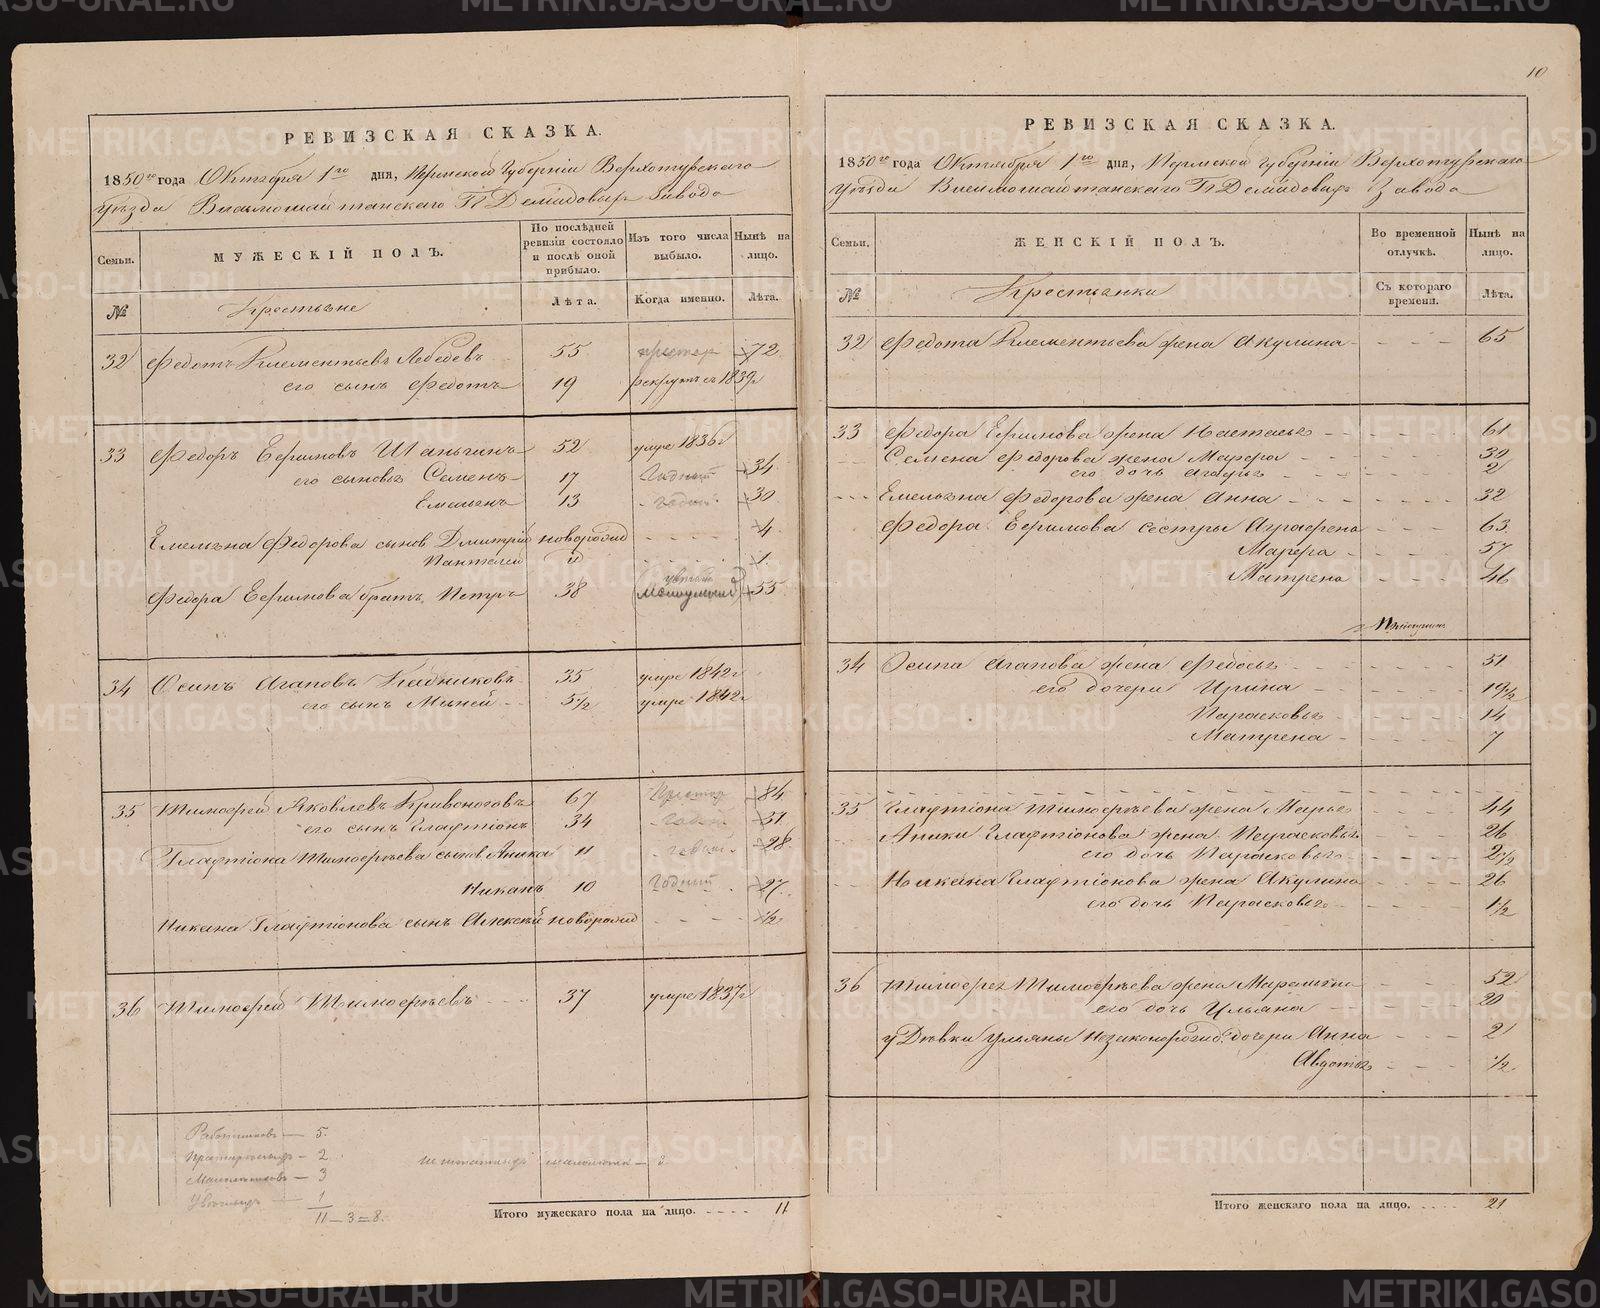 10
РЕВИЗСКАЯ СКАЗКА.
1850го года Октября 1го дня, Пермской Губерніи Верхотурскаго
уѣзда Висимошайтанскаго Гг Демидовыхъ Завода
Семьи.
МУЖЕСКІЙ ПОЛЪ.
По послѣдней ревизіи состояло и послѣ оной прибыло.
Изъ того числа выбыло.
Нынѣ на лицо.
№
Крестьяне
Лѣта.
Когда именно.
Лѣта.
32 Федотъ Клементьевъ Лебедевъ 55 престар 72
его сынъ Федотъ 19 рекрутъ съ 1839г
33 Федоръ Ефимовъ Шаньгинъ 52 умре 1836г
его сыновья Семенъ 17 Годный 34
Емельянъ 13 годный 30
Емельяна Федорова сынов. Дмитрій новорожд - - - - 4
Пантелей и - - - - 1
Федора Ефимова братъ Петръ 38 увѣчный 55
34 Осипъ Агаповъ Кадниковъ 35 умре 1842г
его сынъ Миней 5 1/2 умре 1842г
35 Тимофей Яковлевъ Кривоноговъ 67 Престар 84
его сынъ Галактіонъ 34 годный 51
Галактіона Тимофѣева сынов Аника 11 годный 28
Никанъ 10 Годный 27
Никана Галактіонова сынъ Алексѣй новорожд - - - - 1/2
36 Тимофей Тимофѣевъ 37 умре 1837г
Работниковъ — 5.
Престарѣлыхъ — 2
Малолѣтковъ — 3
Увѣчныхъ — 1
11 — 3 = 8.
Итого мужескаго пола на лицо. - - - - 11
РЕВИЗСКАЯ СКАЗКА.
1850го года Октября 1го дня, Пермской Губерніи Верхотурскаго
уѣзда Висимошайтанскаго Гг Демидовыхъ Завода
Семьи.
ЖЕНСКІЙ ПОЛЪ.
Во временной отлучкѣ.
Нынѣ на лицо.
№
Крестьянки
Съ котораго времени.
Лѣта.
32 Федота Клементьева жена Акулина - - - 65
33 Федора Ефимова жена Настасья - - - - 61
Семена Федорова жена Марфа - - - - 30
его дочь Агафья - - - - 2
Емельяна Федорова жена Анна - - - - 32
Федора Ефимова сестры Аграфена - - - 63
Марфа - - - - 57
Матрена - - - - 46
34 Осипа Агапова жена Федосья - - - - 51
его дочери Ирина - - - - 19 1/2
Парасковья - - - - 14
Матрена - - - - 7
35 Галактіона Тимофѣева жена Марья - - - - 44
Аники Галактіонова жена Парасковья - - - - 26
его дочь Парасковья - - - - 2 1/2
Никана Галактіонова жена Акулина - - - - 26
его дочь Парасковья - - - - 1 1/2
36 Тимофея Тимофѣева жена Маремьяна - - - - 52
его дочь Ульяна - - - - 20
у Дѣвки Ульяны незаконорожд. дочери Анна - - - 2
Авдотья - - - 1/2
Итого женскаго пола на лицо. . . . . 21
METRIKI.GASO-URAL.RU